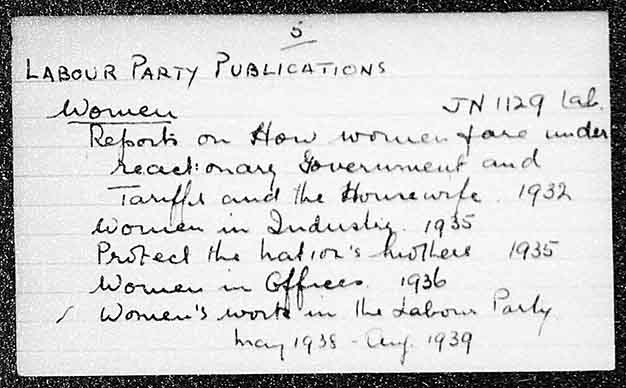 5
LABOUR PARTY PUBLICATIONS
Women JN 1129 Lab.
Reports on How women fare under
reactionary Government and
Tariffs and the Housewife. 1932
Women in Industry. 1935
Protect the nation's mothers 1935
Women in Offices. 1936
Women's work in the Labour Party
May 1938 - Aug. 1939